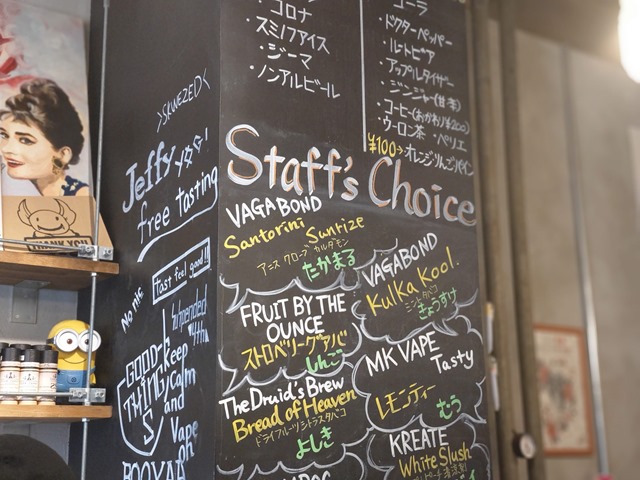 コロナ
・スミノフアイス
・ジーマ
・ノンアルビール
コーラ
・ドクターペッパー
・ルートビア
・アップルタイザー
・ジンジャー(甘・辛)
・コーヒー(おかわり¥200)
・ウーロン茶 ・ペリエ
¥100→オレンジ・りんご・パイン
Staff's Choice
VAGABOND
Santorini Sunrize
アニス クローブ カルダモン
たかまる
VAGABOND
Kulka Kool.
ミントタバコ
きょうすけ
FRUIT BY THE
OUNCE
ストロベリーグアバ
しんご
MK VAPE
Tasty
レモンティー
むう
The Druid's Brew
Bread of Heaven
ドライフルーツシトラスタバコ
よしき
KREATE
White Slush
>SKWEZED<
Jeffy
free tasting
Tast feel good!!
No nic
GOOD-L
THING
S
keep
Calm
and
Vape
on
THANK YOU